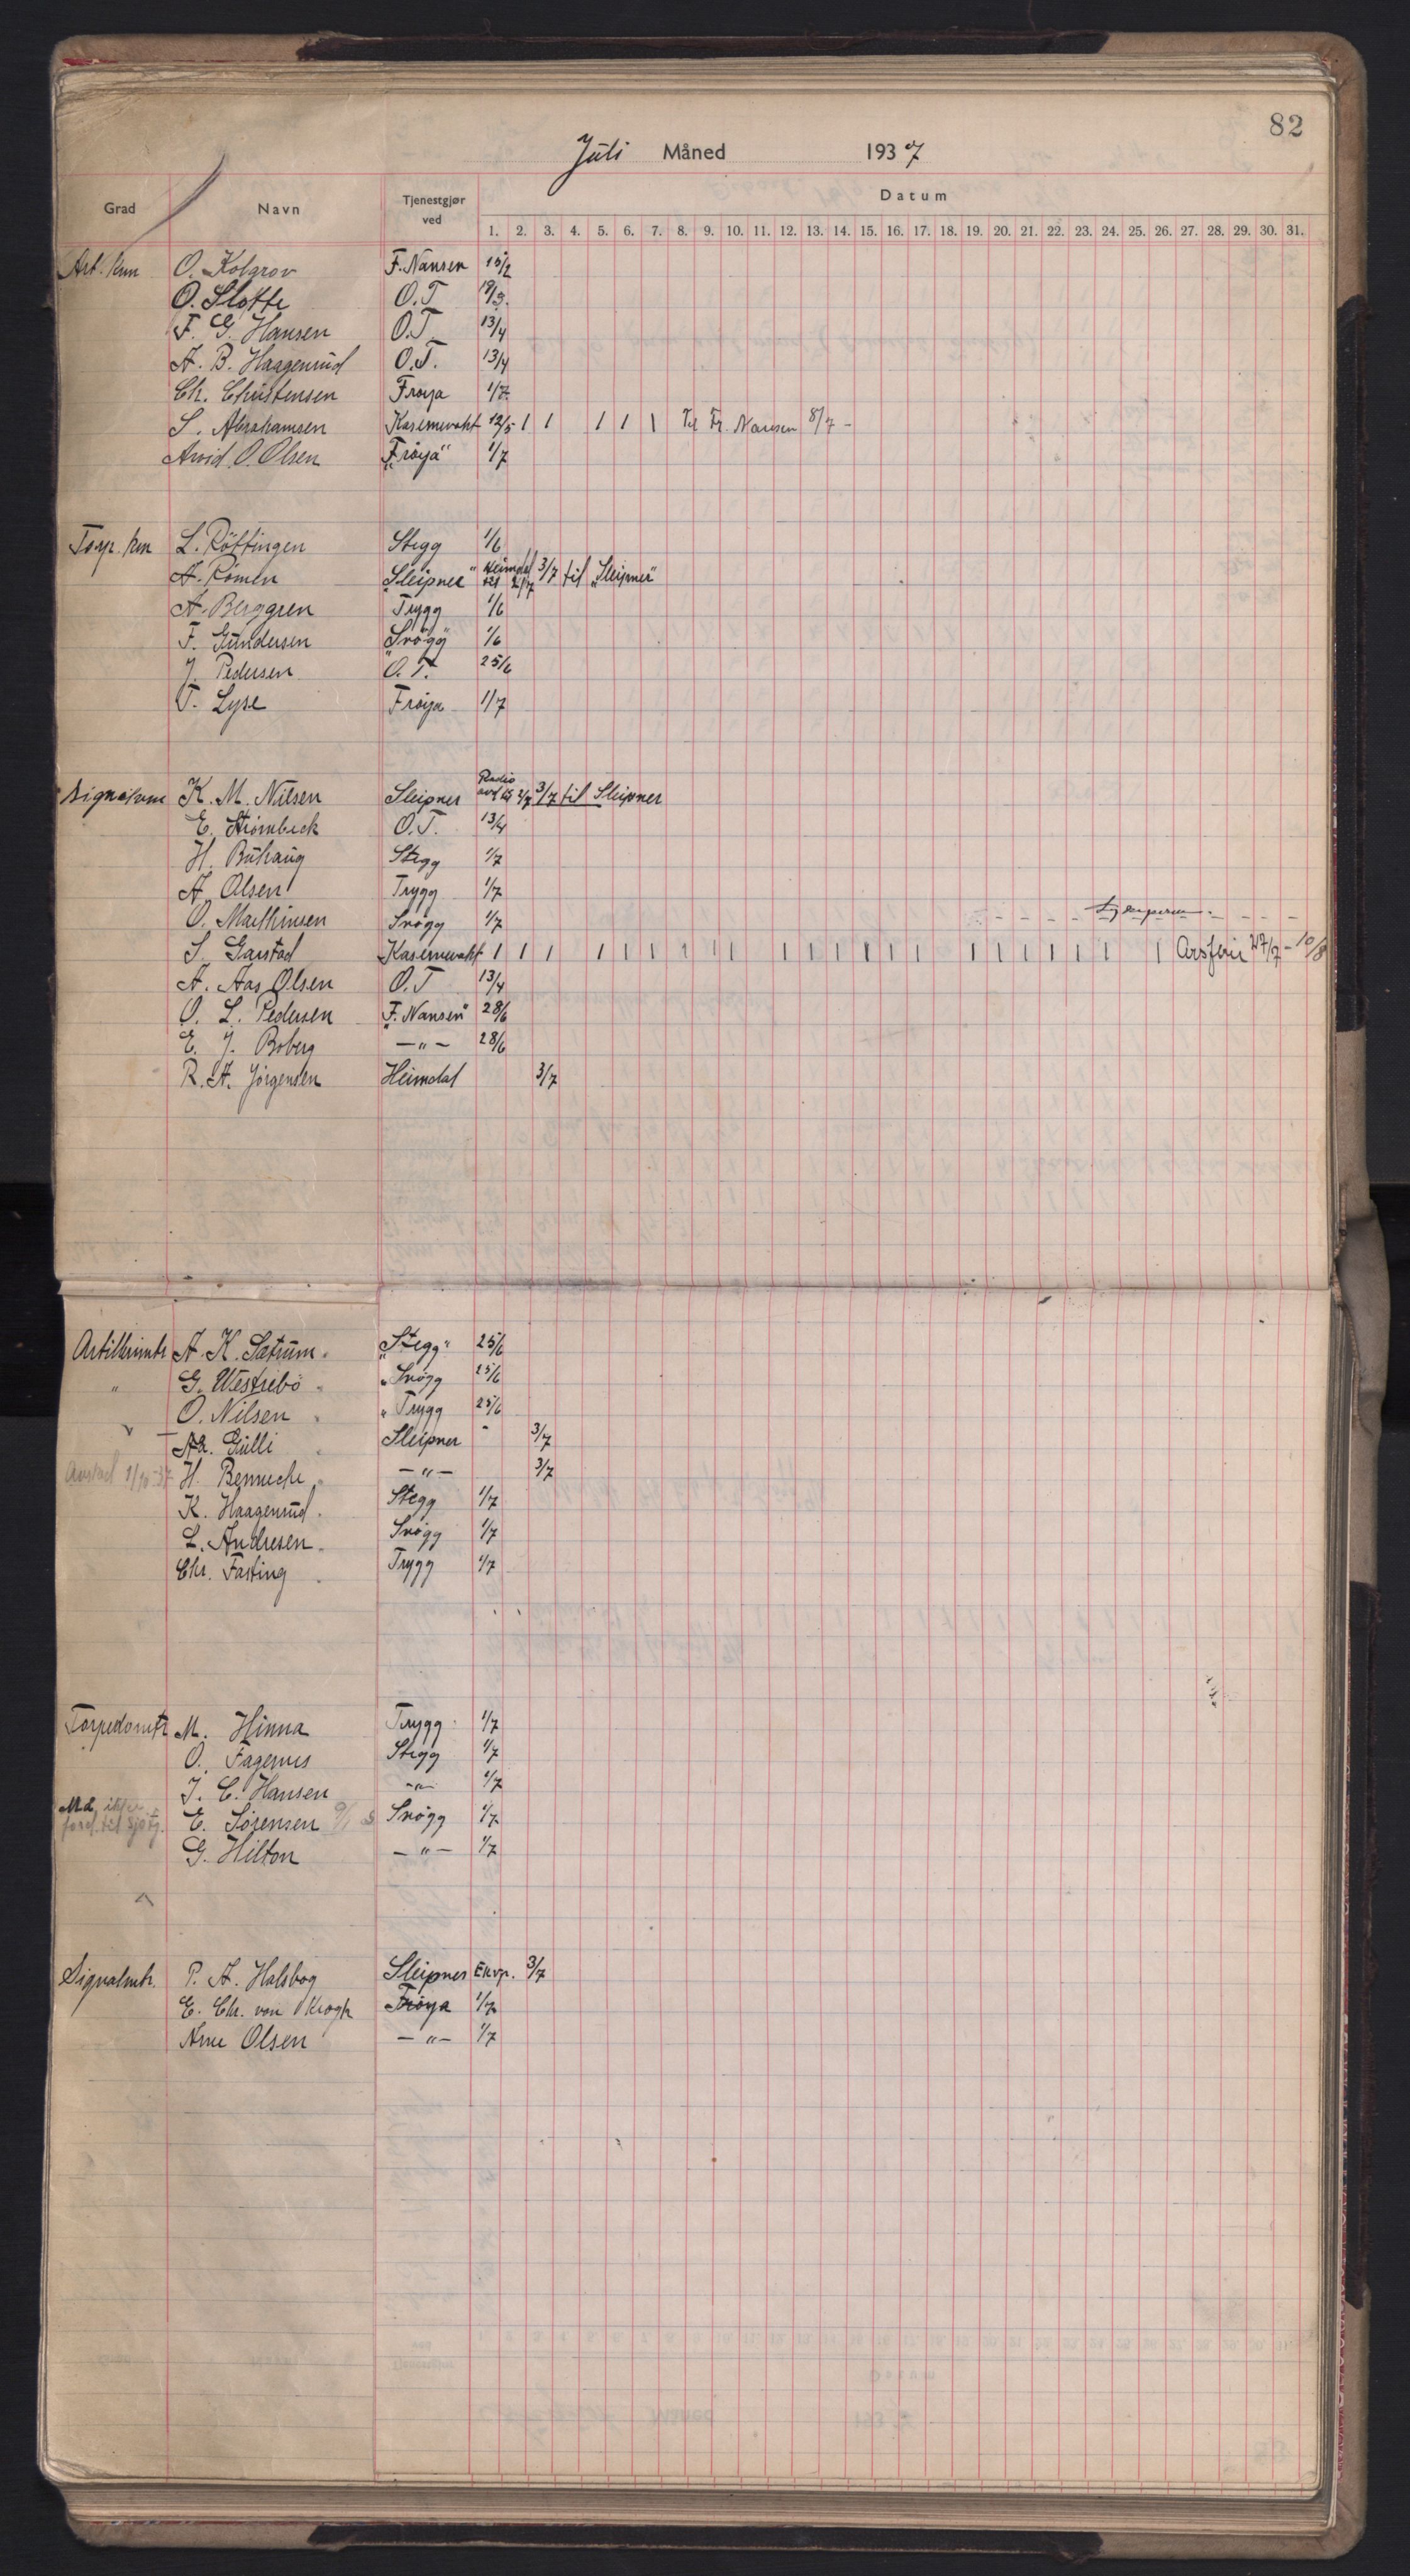 82
Juli Måned 1937
Grad Navn Tjenestgjør ved Datum
1. 2. 3. 4. 5. 6. 7. 8. 9. 10. 11. 12. 13. 14. 15. 16. 17. 18. 19. 20. 21. 22. 23. 24. 25. 26. 27. 28. 29. 30. 31.
Art. kvm O. Kolgrov F. Nansen 15/2
O. Slotte O.T 19/3.
F. G. Hansen O.T. 13/4
A. B. Haagenrud O.T. 13/4
Ch. Christensen Frøya 1/7
S. Abrahamsen Kasernevakt 12/5 | | | | | Til Fr. Nansen 8/7 -
Arvid O. Olsen „Frøya" 1/7
Torp. kvm L. Röttingen Stegg 1/6
A. Römen „Sleipner" Heimdal til 2/7 3/7 til „Sleipner"
A. Berggren Trygg 1/6
F. Gundersen „Snögg" 1/6
J. Pedersen O.T. 25/6
T. Lyse Frøya 1/7
Signalkvm K. M. Nilsen Sleipner Radio avd til 2/7 3/7 til Sleipner
E. Strømbeck O.T. 13/4
H. Buhaug Stegg 1/7
A. Olsen Trygg 1/7
O. Mathinsen Snögg 1/7
S. Garstad Kasernevakt | | | | | | | | | | | | | | | | | | | | | | | Arsferie 27/7 - 10/8
A. Aas Olsen O.T 13/4
O. L. Pedersen „F. Nansen" 28/6
E. J. Boberg — " — 28/6
R. A. Jörgensen Heimdal 3/7
Artillerimtr A. K. Sætrum. „Stegg" 25/6
" G. Westrebö „Snögg 25/6
O. Nilsen „Trygg 25/6
Aa. Gulli Sleipner 3/7
Avstod 1/10-37 H. Benneche — " — 3/7
K. Haagenrud. Stegg 1/7
L. Andresen. Snögg 1/7
Chr. Fasting Trygg 1/7
Torpedomtr M. Hinna Trygg 1/7
O. Fagernes Stegg 1/7
J. C. Hansen — " — 1/7
Må ikke
E. Sørensen Snögg 1/7
G. Hilton — " — 1/7
Signalmtr. P. A. Halsbog Sleipner Ekvp. 3/7
E. Chr. von Krogh Frøya 1/7
Arne Olsen — " — 1/7